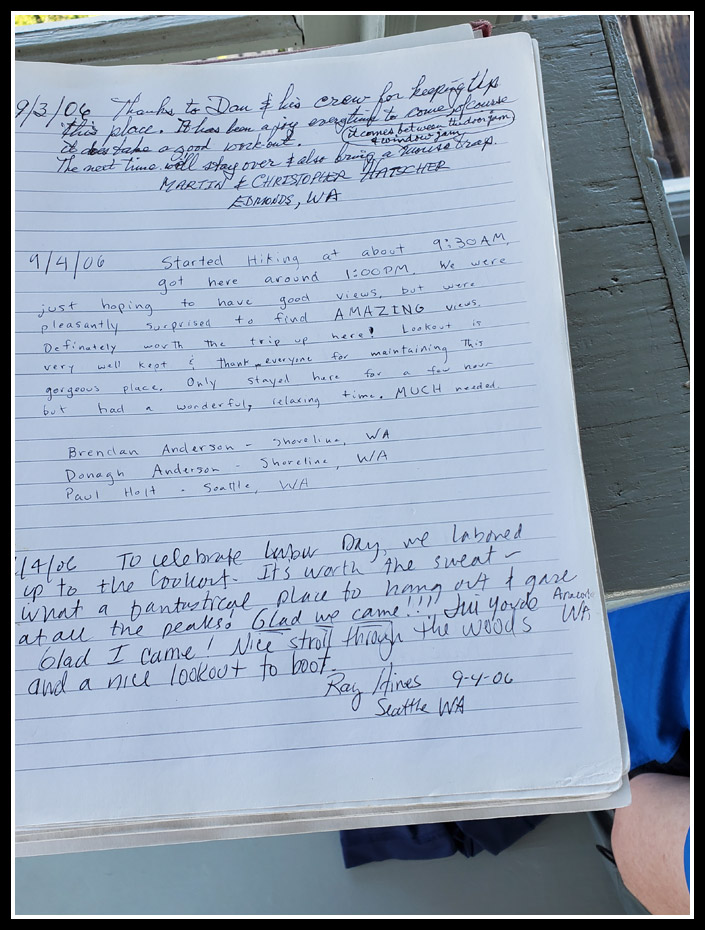 9/3/06 Thanks to Dan & his crew for keeping up
this place. It has been a joy everytime to come of course
it does take a good workout. (it comes between the door jam
& window jam)
The next time will stay over & also bring a mouse trap.
MARTIN & CHRISTOPHER HATCHER
EDMONDS, WA
9/4/06 Started Hiking at about 9:30AM,
got here around 1:00PM. We were
just hoping to have good views, but were
pleasantly surprised to find AMAZING views.
Definately worth the trip up here! Lookout is
very well kept & thank everyone for maintaining this
gorgeous place. Only stayed here for a few hour
but had a wonderful, relaxing time. MUCH needed.
Brendan Anderson - Shoreline, WA
Donagh Anderson - Shoreline, WA
Paul Holt - Seattle, WA
/4/06 To celebrate Labor Day, we labored
up to the lookout. It's worth the sweat -
what a fantastical place to hang out & gaze
at all the peaks! Glad we came!!!!
WA
Glad I came! Nice stroll through the woods
and a nice lookout to boot.
Ray Hines 9-4-06
Seattle WA